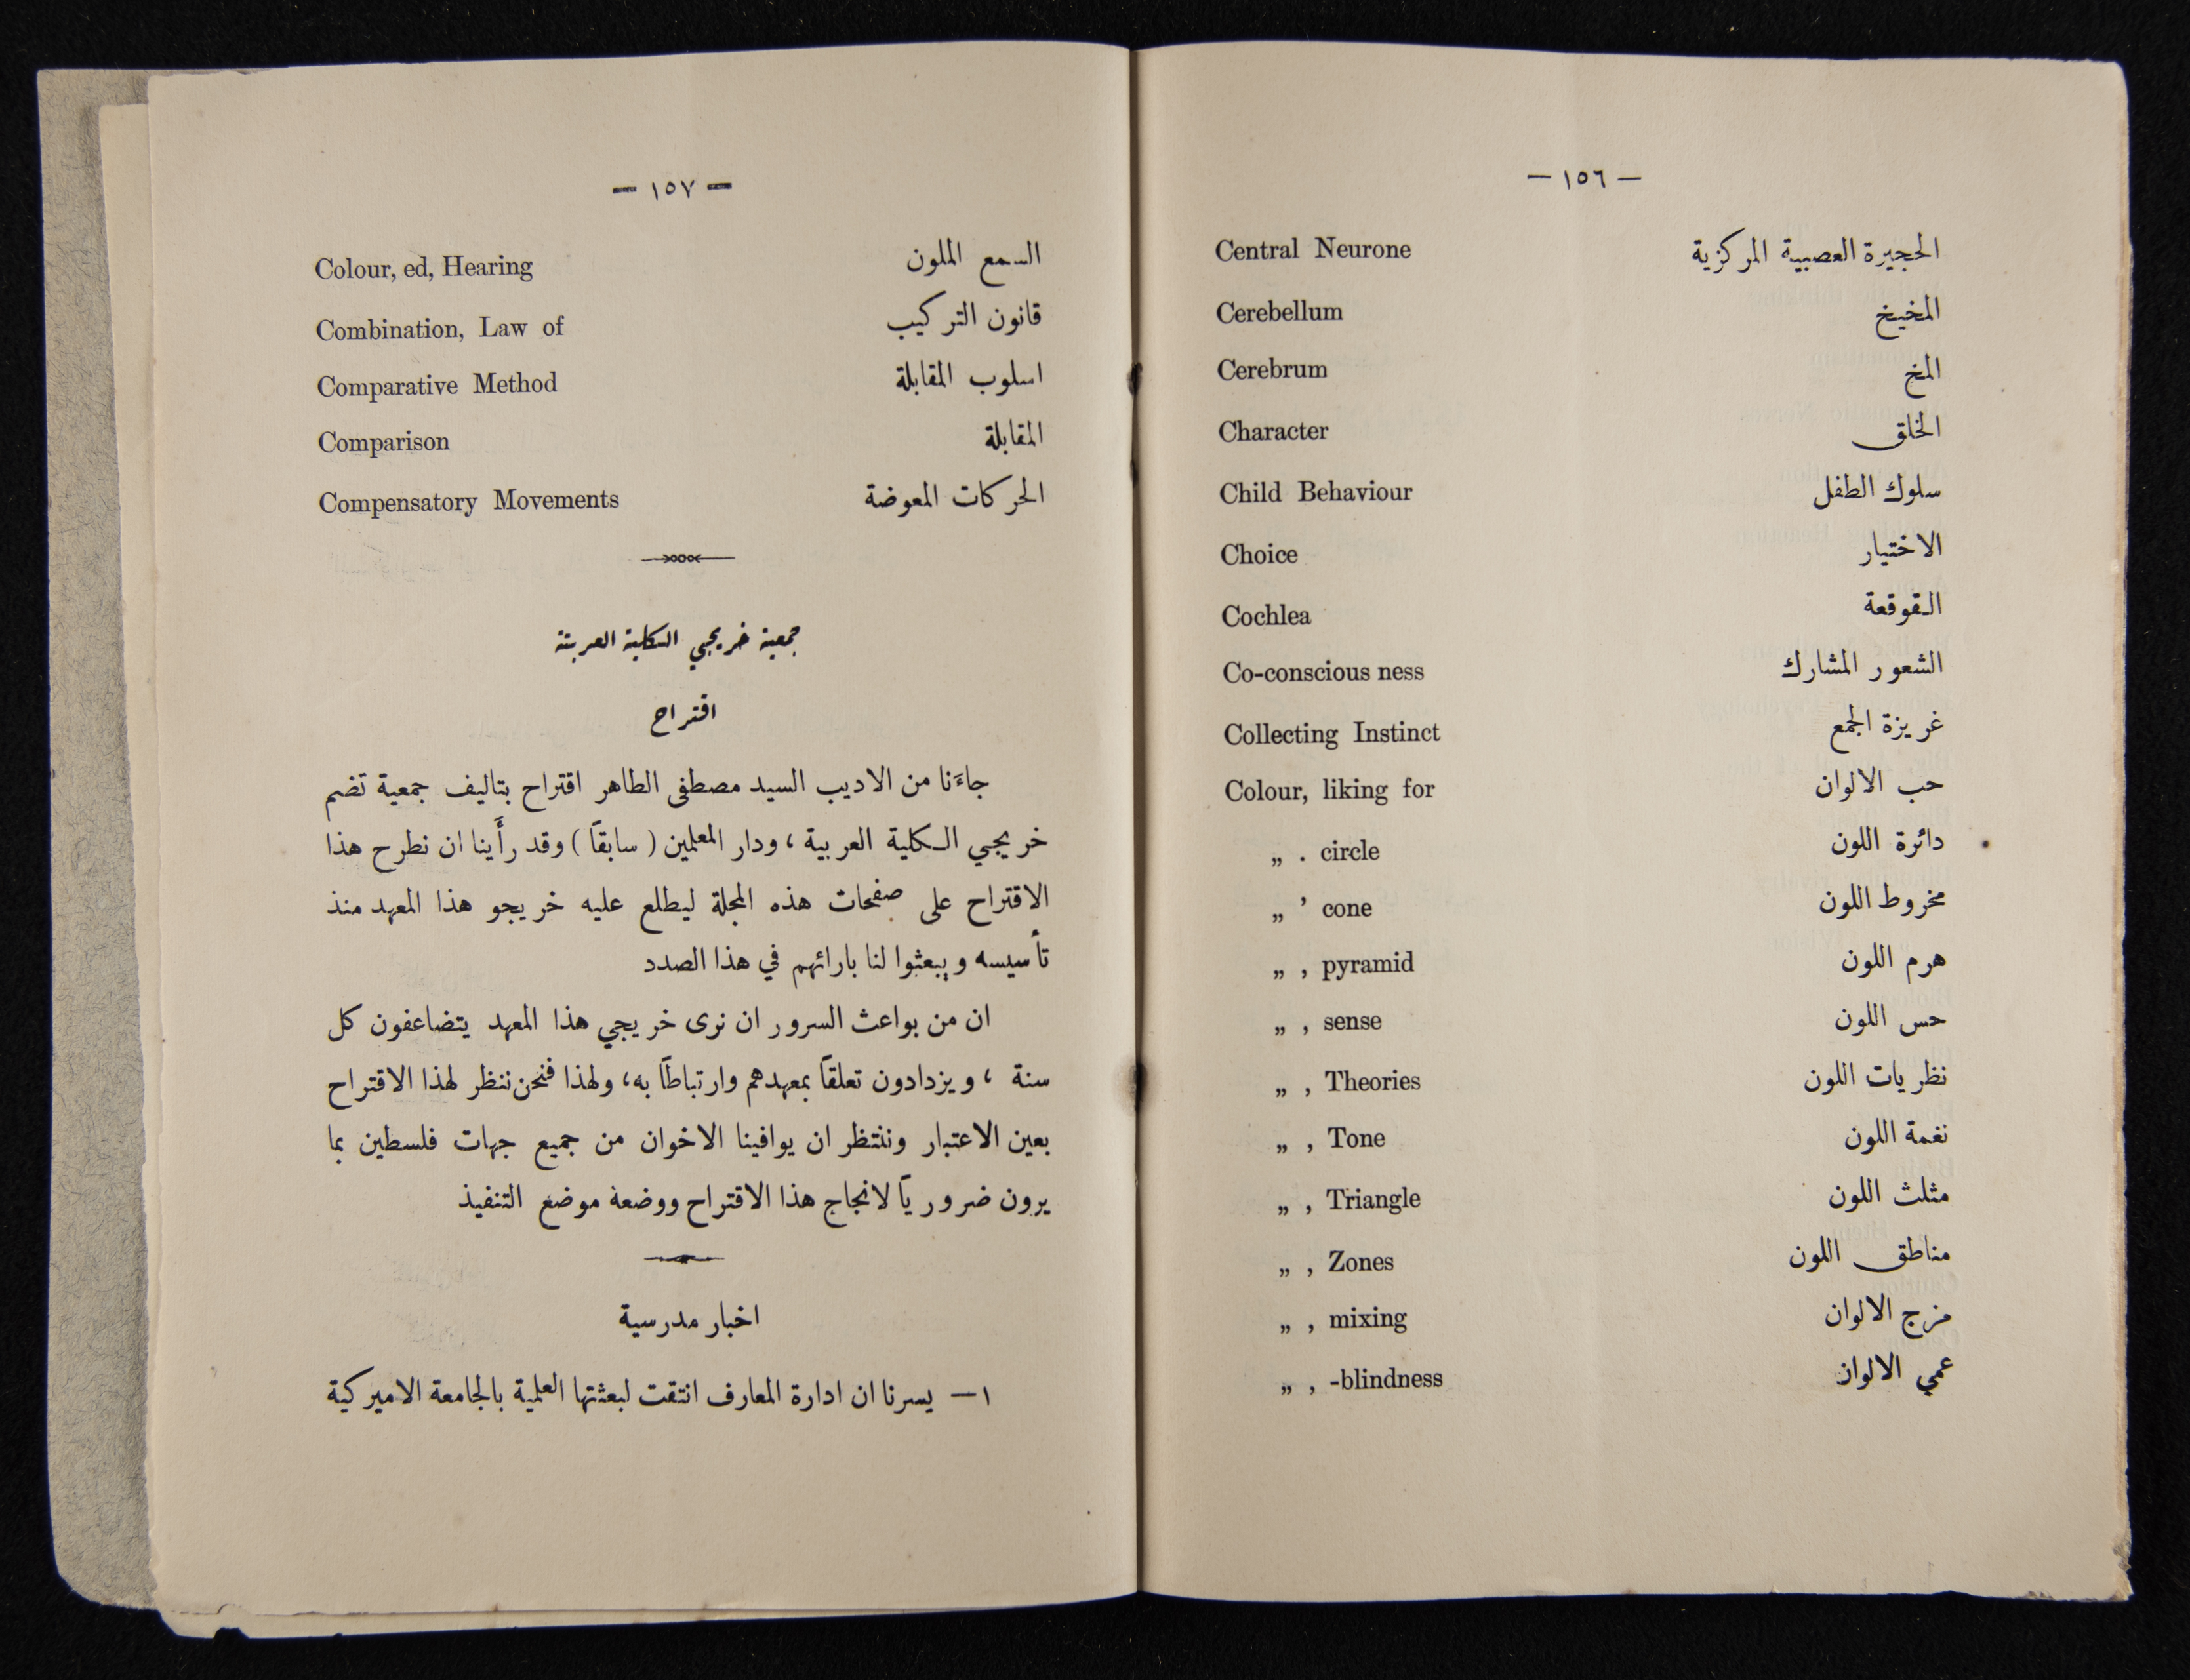 — ١٥٦ —
Central Neurone الحجيرة العصبية المركزية
Cerebellum المخيخ
Cerebrum المخ
Character الخلق
Child Behaviour سلوك الطفل
Choice الاختيار
Cochlea القوقعة
Co-conscious ness الشعور المشارك
Collecting Instinct غريزة الجمع
Colour, liking for حب الالوان
„ . circle دائرة اللون
„ ’ cone مخروط اللون
„ , pyramid هرم اللون
„ , sense حس اللون
„ , Theories نظريات اللون
„ , Tone نغمة اللون
„ , Triangle مثلث اللون
„ , Zones مناطق اللون
„ , mixing مزج الالوان
„ , -blindness عمي الالوان
— ١٥٧ —
Colour, ed, Hearing السمع الملون
Combination, Law of قانون التركيب
Comparative Method اسلوب المقابلة
Comparison المقابلة
Compensatory Movements الحركات المعوضة
جمعية خريجي الكلية العربية
اقتراح
جاءَنا من الاديب السيد مصطفى الطاهر اقتراح بتاليف جمعية تضم
خريجي الكلية العربية ، ودار المعلمين ( سابقاً ) وقد رأَينا ان نطرح هذا
الاقتراح على صفحات هذه المجلة ليطلع عليه خريجو هذا المعهد منذ
تأسيسه ويبعثوا لنا بارائهم في هذا الصدد
ان من بواعث السرور ان نرى خريجي هذا المعهد يتضاعفون كل
سنة ، ويزدادون تعلقاً بمعهدهم وارتباطاً به، ولهذا فنحن ننظر لهذا الاقتراح
بعين الاعتبار وننتظر ان يوافينا الاخوان من جميع جهات فلسطين بما
يرون ضرورياً لانجاح هذا الاقتراح ووضعه موضع التنفيذ
اخبار مدرسية
١ — يسرنا ان ادارة المعارف انتقت لبعثتها العلمية بالجامعة الاميركية